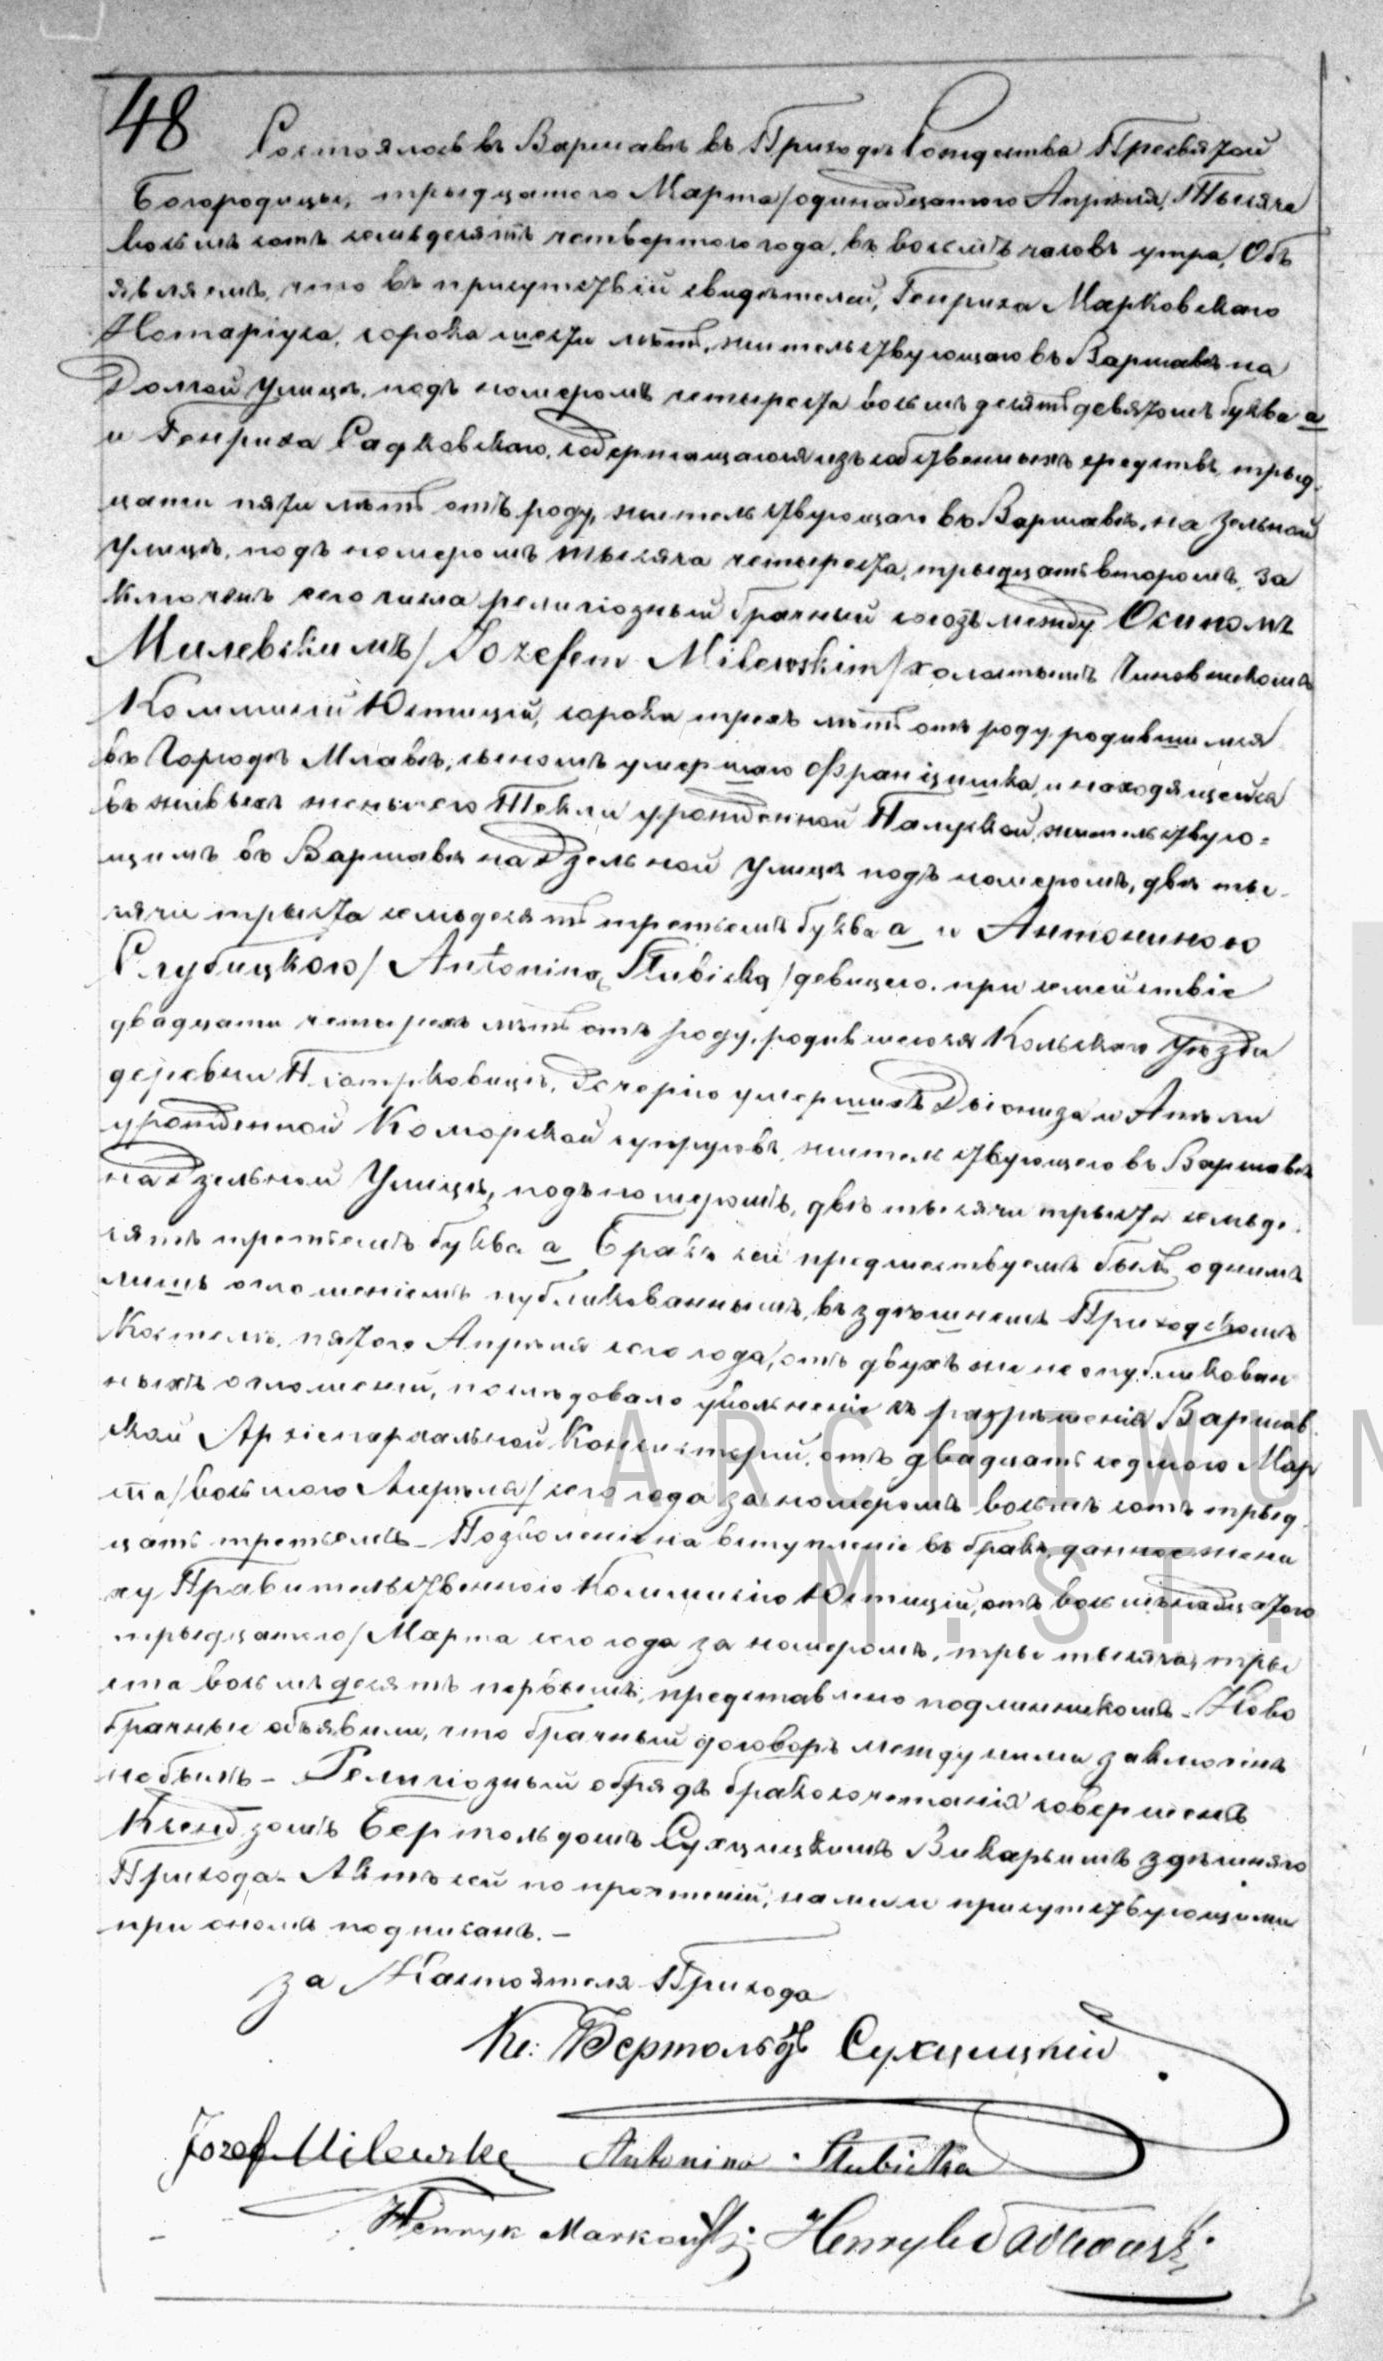 48
Состоялось въ Варшавѣ въ Приходѣ Рождества Пресвятой
Богородицы, трыдцатого Марта/одинадцатого Апрѣля, Тысяча
восьмъ сотъ семьдесятъ четвертого года, въ восьмъ часовъ утра, Объ
являемъ, что въ присутствіи свидѣтелей, Генриха Марковскаго
Нотаріуса, сорока шести лѣтъ, жительствующаго въ Варшавѣ на
Долгой Улицѣ, подъ номеромъ четыреста восьмъдесятъ девятомъ буква а
и Генриха Садковскаго, содержащагося изъ собственныхъ средствъ, трыд
цати пяти лѣтъ отъ роду, жительствующаго въ Варшавѣ, на Зельной
Улицѣ, подъ номеромъ тысяча четыреста, трыдцать второмъ, за
ключенъ сего числа религіозный брачный союзъ между Осипомъ
Милевскимъ/Jozefem Milewskim/холостымъ Чиновникомъ
Коммисіи Юстиціи, сорока трехъ лѣтъ отъ роду, родившимся
въ Городѣ Млавѣ, сыномъ умершаго Францишка, и находящейся
въ живыхъ жены его Текли урожденной Палуской, жительствую=
щимъ въ Варшавѣ на Дзельной Улицѣ подъ номеромъ, двѣ ты-
сячи трыста семьдесятъ третьемъ буква а и Антониною
Слубицкою/Antoniną Słubicką/девицею, при семействіе
двадцати четырехъ лѣтъ отъ роду, родившеюся Кольскаго Уѣзда
деревни Піотрковицѣ, Дочерію умершихъ Діониза и Анѣли
урожденной Коморской супруговъ, жительствующею въ Варшавѣ
на Дзельной Улицѣ, подъ номеромъ, двѣ тысячи трыста семьде-
сятъ третьемъ буква а Бракъ сей предшествуемъ былъ однимъ
лишь оглошеніемъ публикованнымъ, въ здѣшнемъ Приходскомъ
Костелѣ, пятого Апрѣля сего года, отъ двухъ же не опубликован
ныхъ оглошеній, послѣдовало увольненіе съ разрѣшенія Варшав-
ской Архіепархальной Консисторіи, отъ двадцать седмого Мар
та/восьмого Апрѣля/сего года за номеромъ восьмъ сотъ трыд-
цать третьемъ - Позволеніе на вступленіе въ бракъ, данное жени
ху Правительственного Коммисіею Юстиціи, отъ восьмънадцатого
трыдцатого/Марта сего года за номеромъ, тры тысяча, тры
ста восьмъдесятъ первымъ, представлено подлинникомъ - Ново
брачные объявили, что брачный договоръ между ними заключенъ
не былъ - Религіозный обрядъ бракосочетанія совершенъ
Ксендзомъ Бертольдомъ Сухцицкимъ Викарымъ здѣшняго
Прихода - Актъ сей по прочтеніи, нами и присутствующими
при ономъ подписанъ. -
За Настоятеля Прихода
Кс: Бертольдъ Сухцицкій
Jozef Milewski Antonina Słubicka
Henryk Markowski Henryk Sadkowski
ARCHIWUM
M. ST.